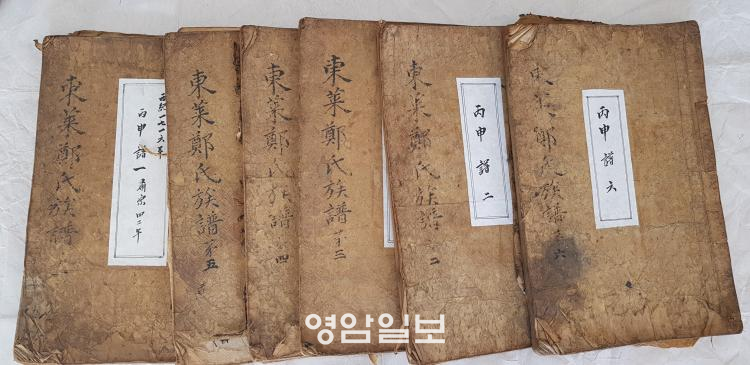 東萊鄭氏族譜 一
西紀一七一六年
丙申譜 一 肅宗四二年
東萊鄭氏族譜 第五
東萊鄭氏族譜 第四
東萊鄭氏族譜 第三
東萊鄭氏族譜 二
丙申譜 二
東萊鄭氏族譜 六
丙申譜 六
영암일보